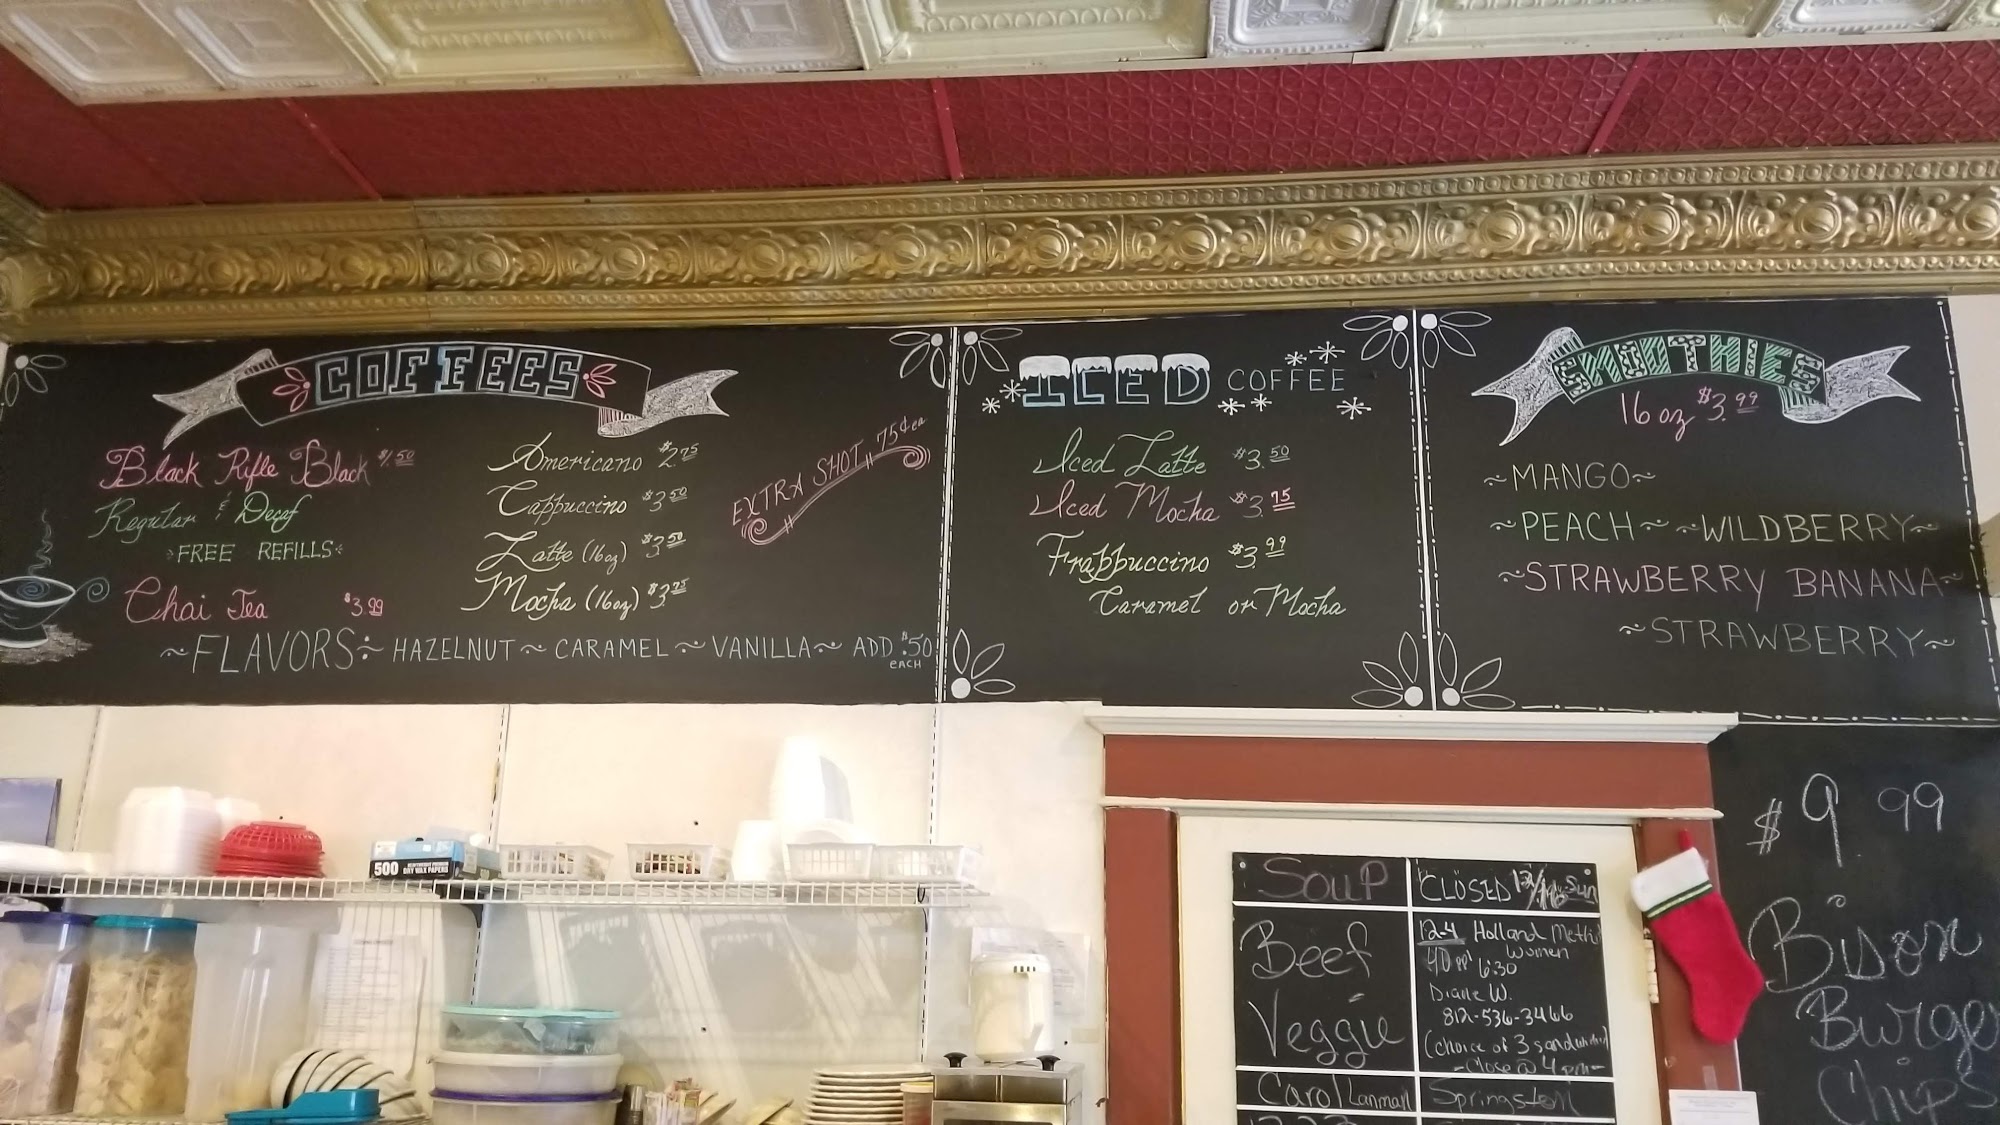 COFFEES
Black Rifle Black $1.50
Regular & Decaf
FREE REFILLS
Chai Tea $3.99
Americano $2.75
Cappuccino $3.50
Latte (16oz) $3.50
Mocha (16oz) $3.75
EXTRA SHOT 75¢ ea
~FLAVORS: HAZELNUT ~ CARAMEL ~ VANILLA ~ ADD $.50
EACH
ICED COFFEE
Iced Latte $3.50
Iced Mocha $3.75
Frappuccino $3.99
Caramel or Mocha
SMOOTHIES
16 oz $3.99
~MANGO~
~PEACH~ ~WILDBERRY~
~STRAWBERRY BANANA~
~STRAWBERRY~
500 HEAVYWEIGHT PREMIUM
DRY WAX PAPERS
SOUP
Beef
Veggie
Carol Lanman
CLOSED
12-4 Holland
Women
6:30
Diane W.
812-536-3466
(choice of 3
-Close @ 4pm-
$9 99
Bison
Burge
Chips